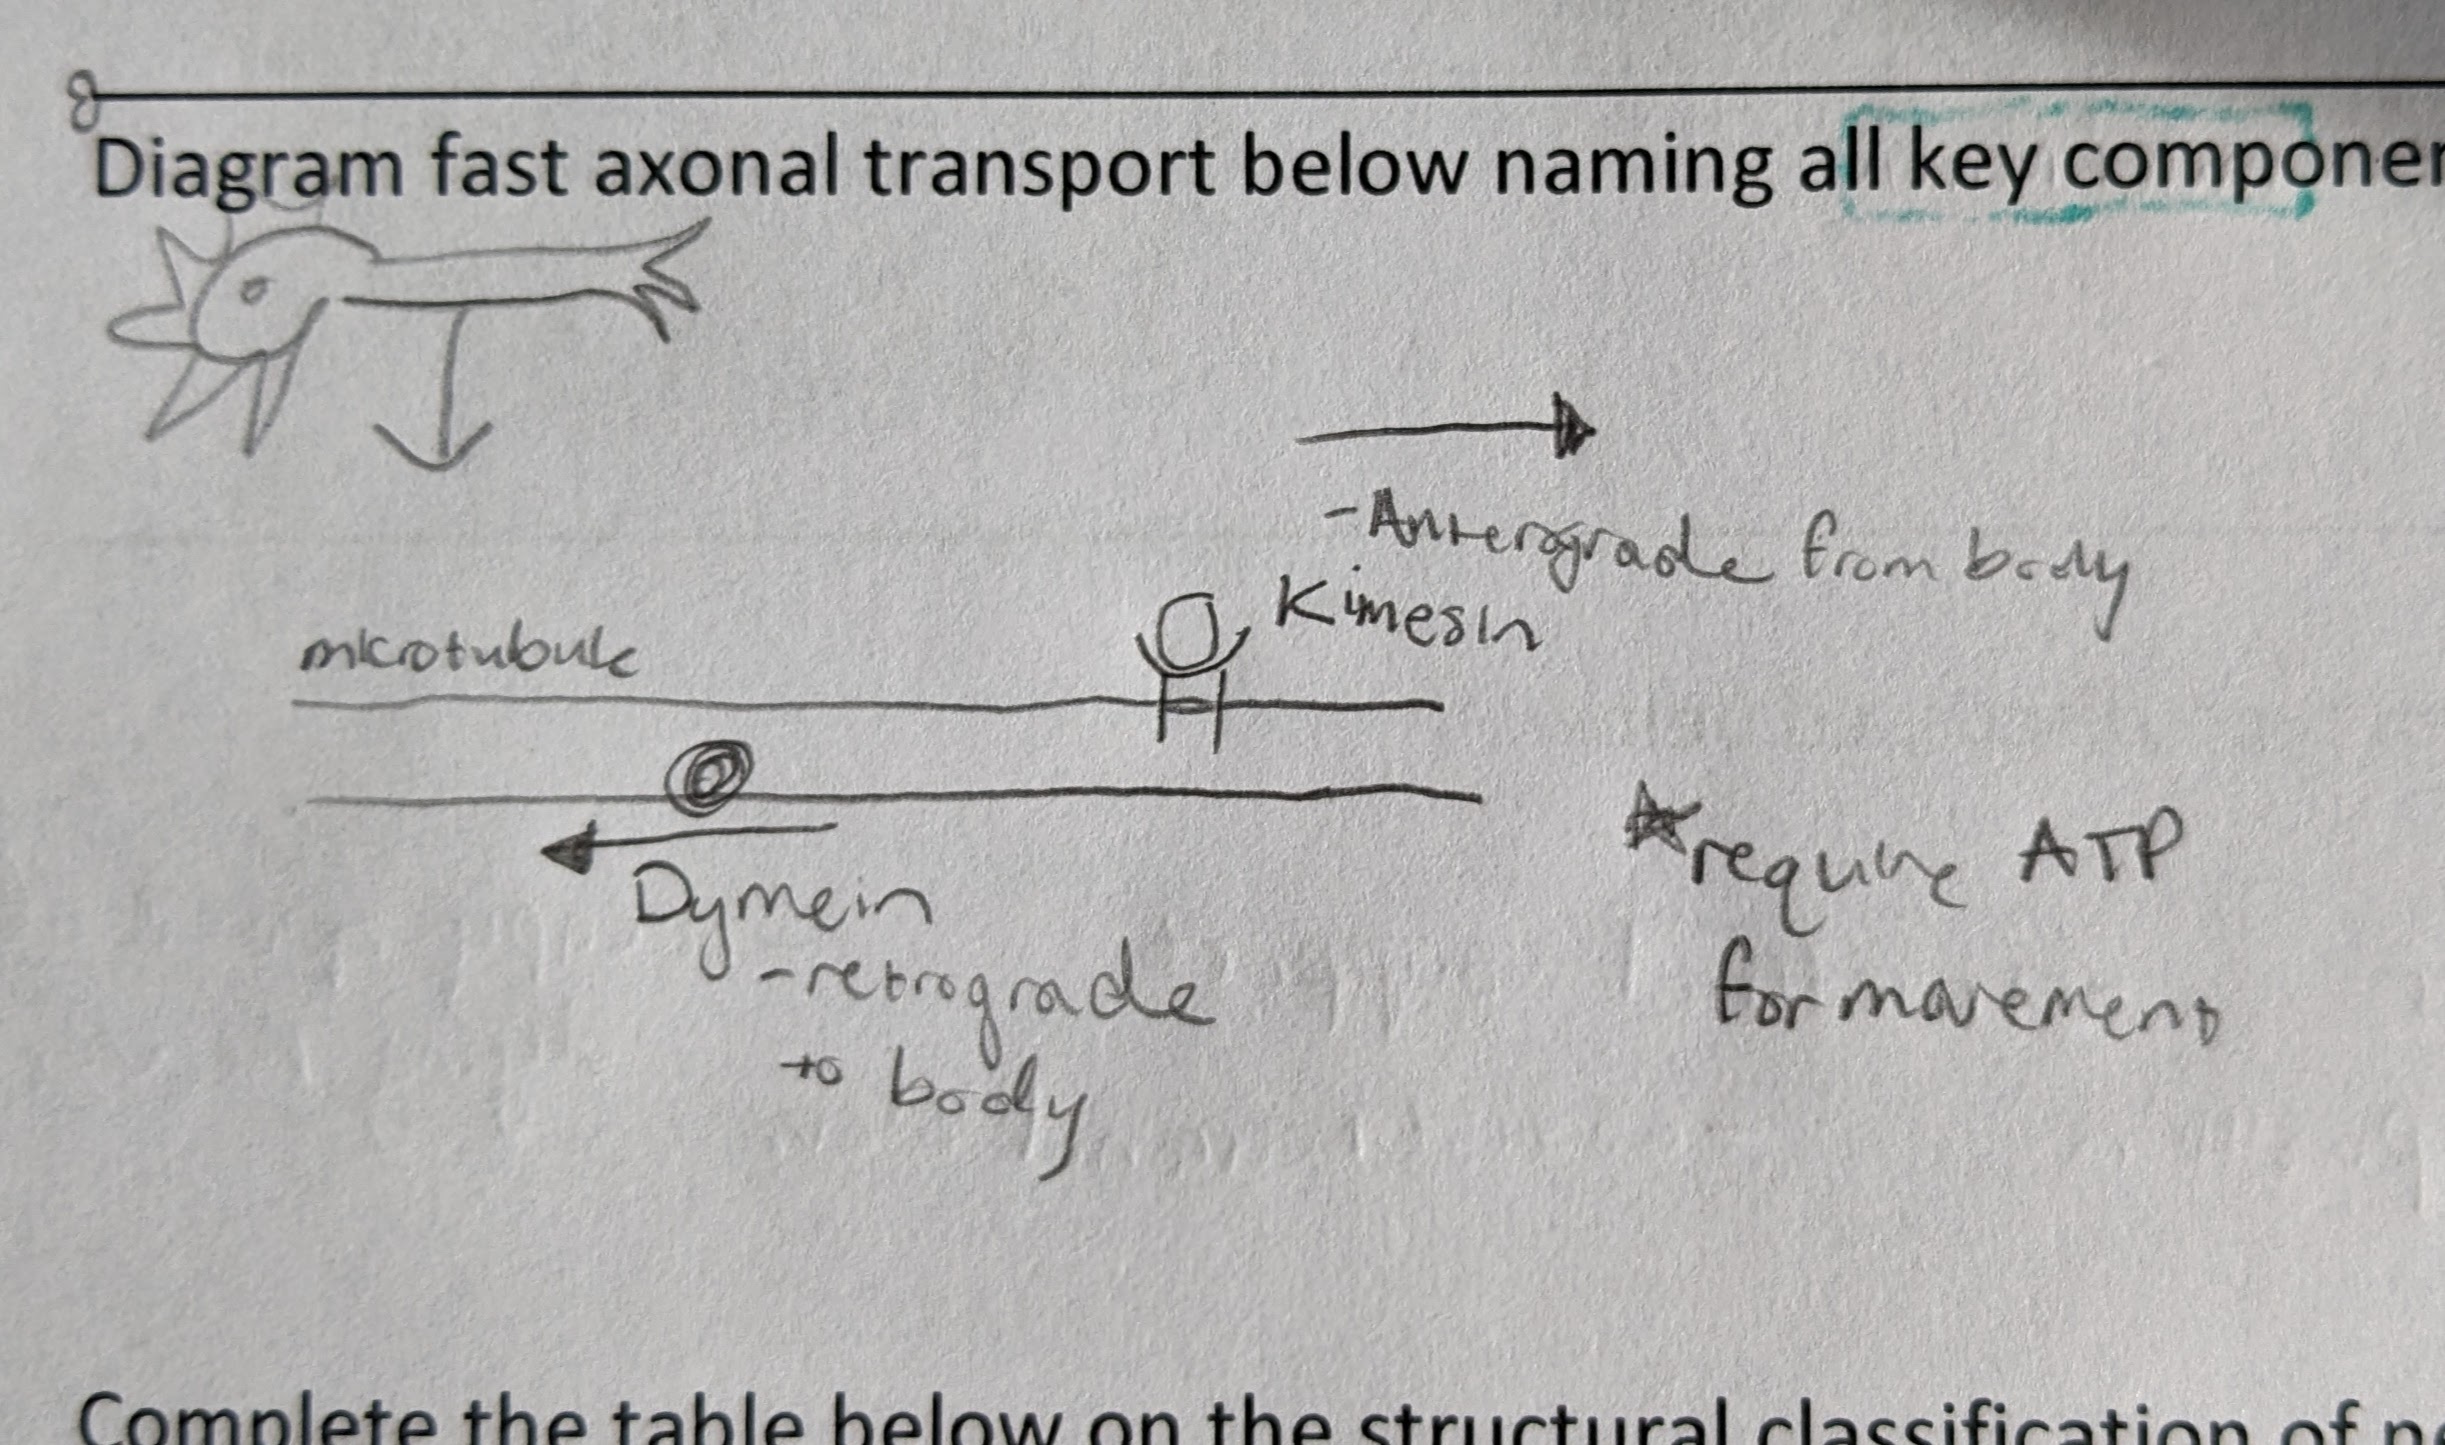 Diagram fast axonal transport below naming all key componen
- Anterograde from body
Kimesin
microtubule
Dymein
- retrograde
to body
require ATP
for movement
Complete the table below on the structural classification of ne